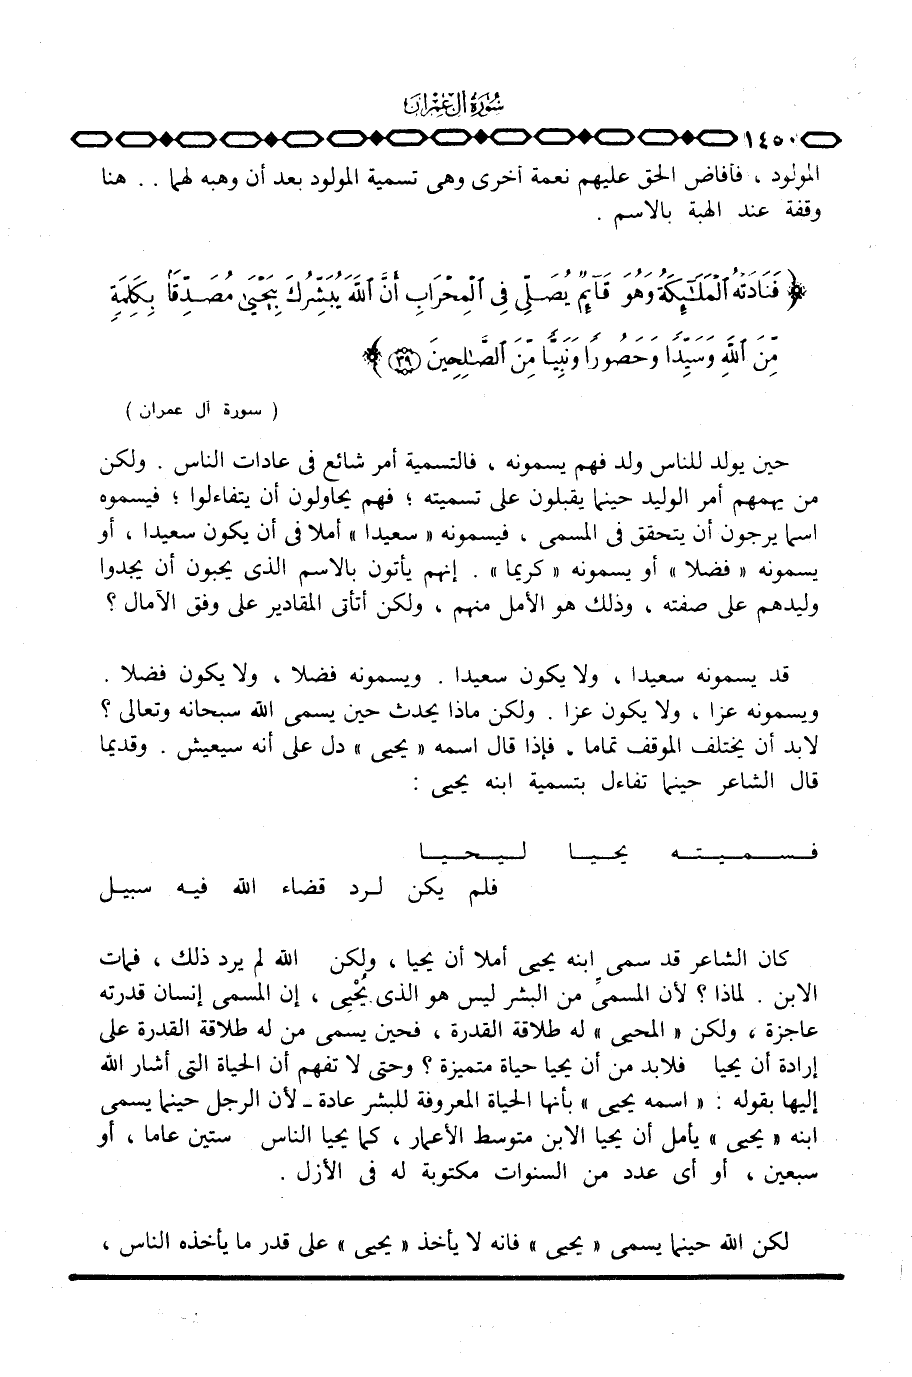 سورة آل عمران
١٤٥٠
المولود ، فأفاض الحق عليهم نعمة أخرى وهى تسمية المولود بعد أن وهبه لهما . . هنا
وقفة عند الهبة بالاسم .
﴿ فَنَادَتْهُ ٱلْمَلَـٰٓئِكَةُ وَهُوَ قَآئِمٌ يُصَلِّى فِى ٱلْمِحْرَابِ أَنَّ ٱللَّهَ يُبَشِّرُكَ بِيَحْيَىٰ مُصَدِّقًا بِكَلِمَةٍ
مِّنَ ٱللَّهِ وَسَيِّدًا وَحَصُورًا وَنَبِيًّا مِّنَ ٱلصَّـٰلِحِينَ ﴿٣٩﴾ ﴾
( سورة آل عمران )
حين يولد للناس ولد فهم يسمونه ، فالتسمية أمر شائع فى عادات الناس . ولكن
من يهمهم أمر الوليد حينما يقبلون على تسميته ؛ فهم يحاولون أن يتفاءلوا ؛ فيسموه
اسما يرجون أن يتحقق فى المسمى ، فيسمونه « سعيدا » أملا فى أن يكون سعيدا ، أو
يسمونه « فضلا » أو يسمونه « كريما » . إنهم يأتون بالاسم الذى يحبون أن يجدوا
وليدهم على صفته ، وذلك هو الأمل منهم ، ولكن أتأتى المقادير على وفق الآمال ؟
قد يسمونه سعيدا ، ولا يكون سعيدا . ويسمونه فضلا ، ولا يكون فضلا .
ويسمونه عزا ، ولا يكون عزا . ولكن ماذا يحدث حين يسمى الله سبحانه وتعالى ؟
لابد أن يختلف الموقف تماما ، فإذا قال اسمه « يحيى » دل على أنه سيعيش . وقديما
قال الشاعر حينما تفاءل بتسمية ابنه يحيى :
فسميته يحيا ليحيا
فلم يكن لرد قضاء الله فيه سبيل
كان الشاعر قد سمى ابنه يحيى أملا أن يحيا ، ولكن الله لم يرد ذلك ، فمات
الابن . لماذا ؟ لأن المسمىِّ من البشر ليس هو الذى يُحْيِى ، إن المسمى إنسان قدرته
عاجزة ، ولكن « المحيى » له طلاقة القدرة ، فحين يسمى من له طلاقة القدرة على
إرادة أن يحيا فلابد من أن يحيا حياة متميزة ؟ وحتى لا تفهم أن الحياة التى أشار الله
إليها بقوله : « اسمه يحيى » بأنها الحياة المعروفة للبشر عادة ـ لأن الرجل حينما يسمى
ابنه « يحيى » يأمل أن يحيا الابن متوسط الأعمار ، كما يحيا الناس ستين عاما ، أو
سبعين ، أو أى عدد من السنوات مكتوبة له فى الأزل .
لكن الله حينما يسمى « يحيى » فانه لا يأخذ « يحيى » على قدر ما يأخذه الناس ،